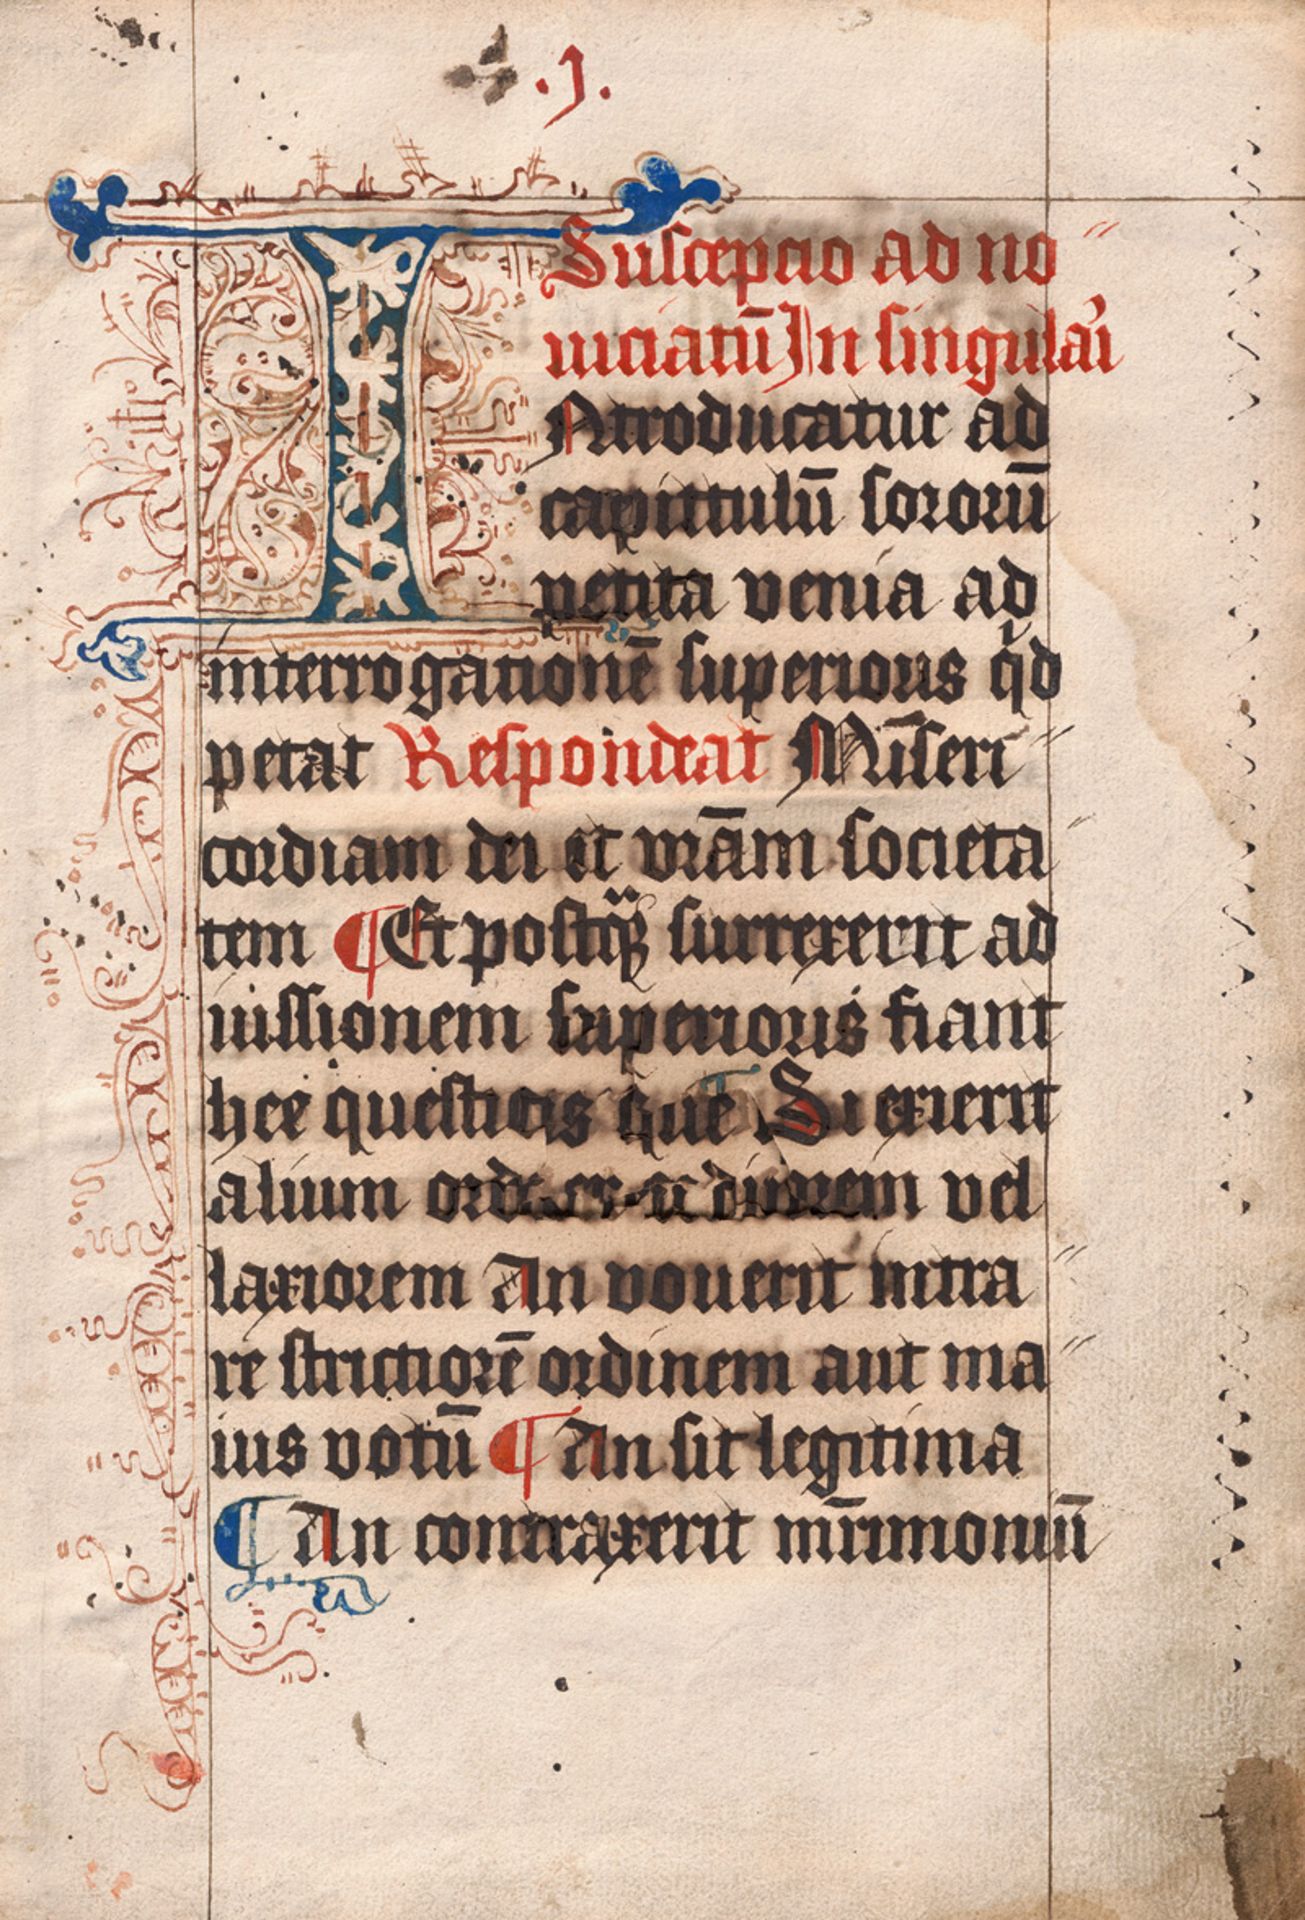 .J.
Suscepcio ad no
uiciatū In singulaꝛi
INtroducatur ad
capittulū sororū
petita venia ad
interrogationē superioris qͥd
petat Respondeat Miseri
cordiam dei et vrām societa
tem ¶ Et postqͣꝫ surrexerit ad
iussionem superioris fiant
hee questiones ¶ Si exierit
alium duriorem vel
laxiorem An vouerit intra
re strictiorē ordinem aut ma
ius votū ¶ An sit legitima
¶ An contraxerit mr̄imoniū